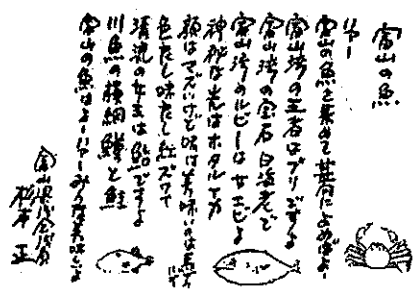 富山の魚
リャー
富山の魚を集めて甚句によめばよー
富山湾の王者はブリですよ
富山湾の宝石白海老で
富山湾のルビーは甘エビよ
神秘な光はホタルイカ
顔はでかいけど味は美味いのは
色だし味だし紅ズワイ
清流の女王は鮎ですよ
川魚の横綱鱒と鮭
富山の魚はよーリャーみな美味しいよ
富山県
正